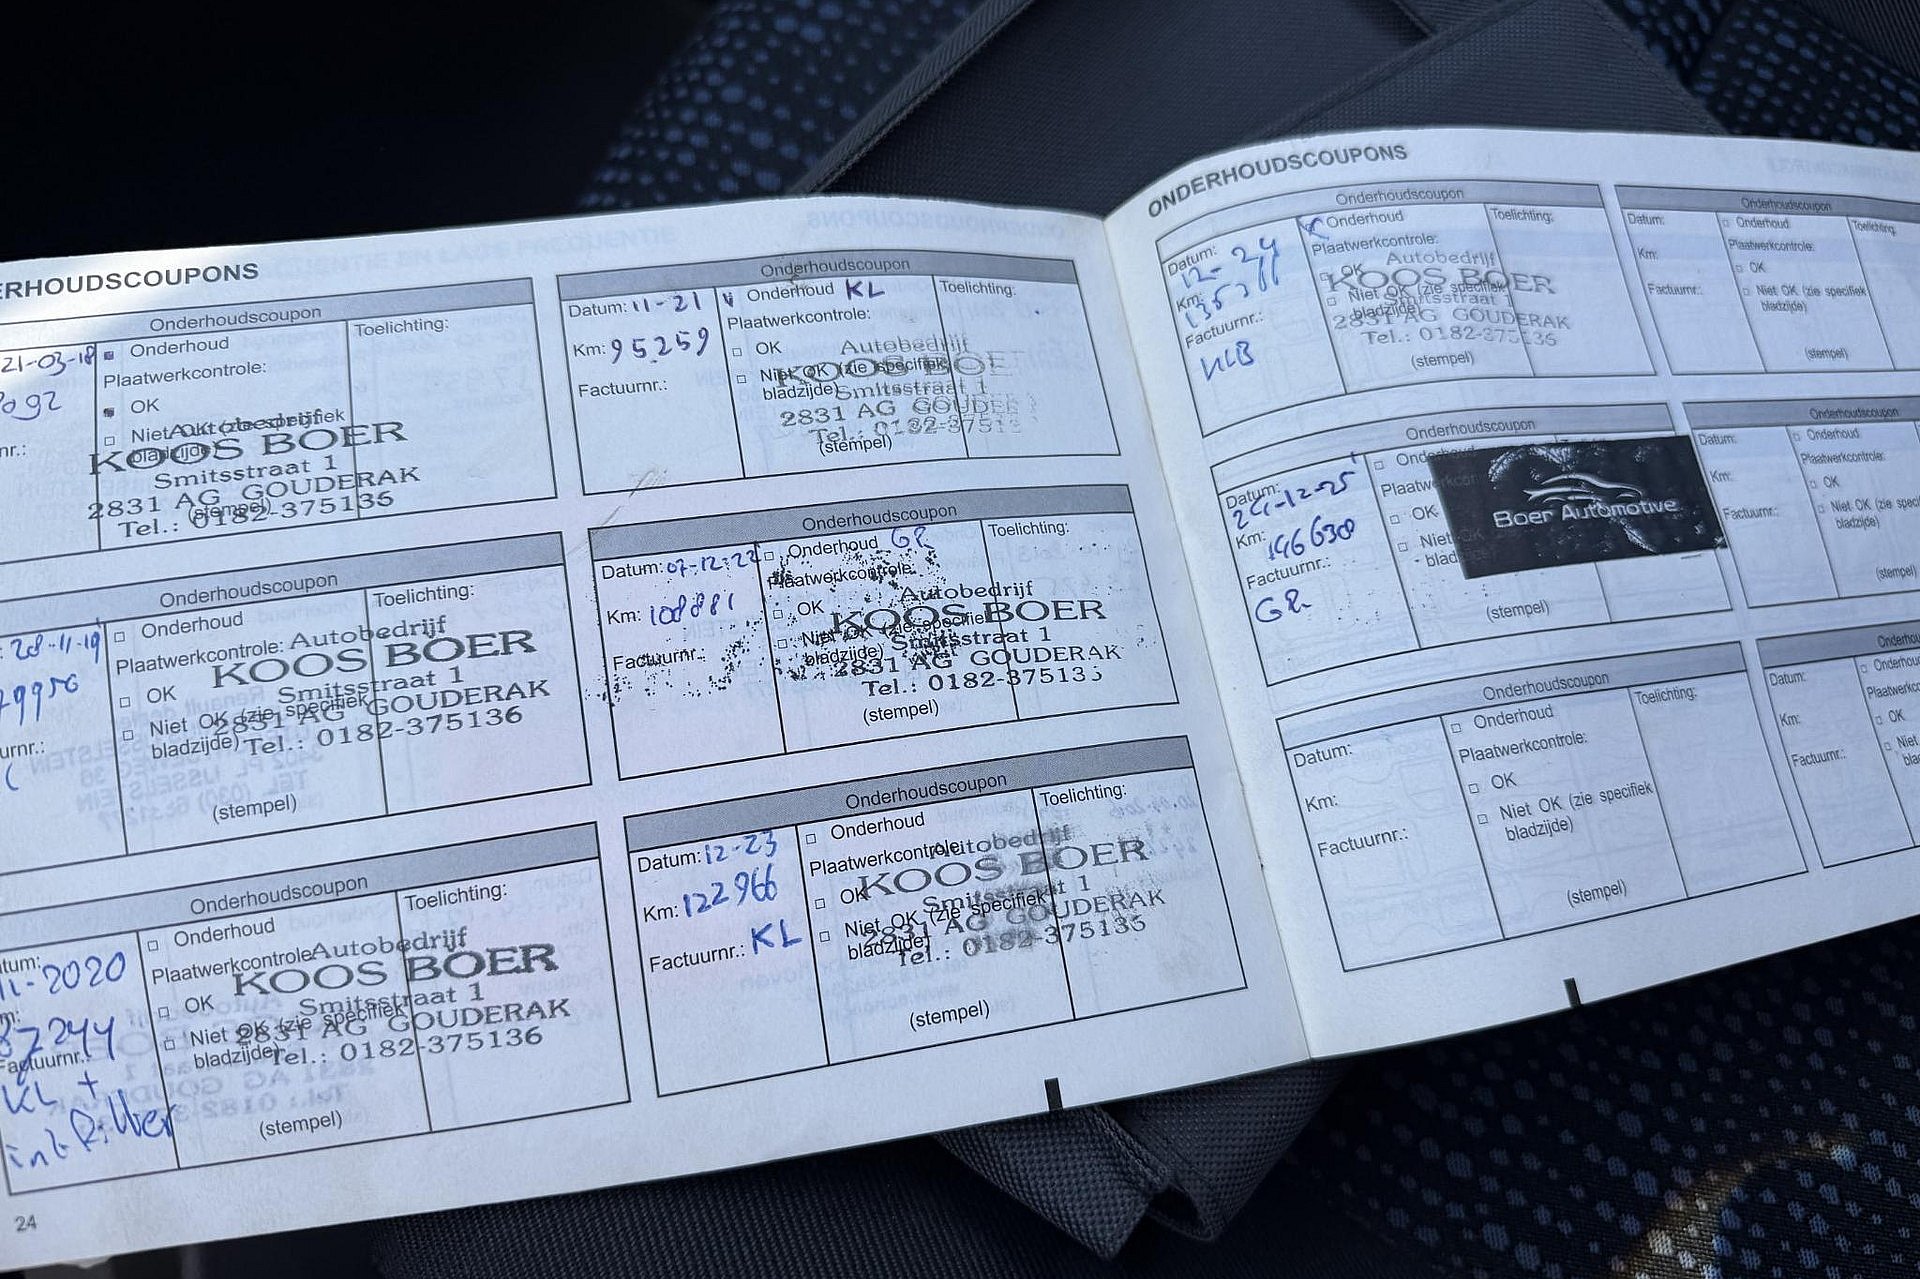 ERHOUDSCOUPONS
Onderhoudscoupon
21-03-18
Onderhoud
Toelichting:
Plaatwerkcontrole:
OK
Niet OK (zie specifiek
bladzijde)
Autobedrijf
KOOS BOER
Smitsstraat 1
2831 AG GOUDERAK
Tel.: 0182-375136
(stempel)
Onderhoudscoupon
28-11-19
Onderhoud
Toelichting:
Plaatwerkcontrole:
OK
Niet OK (zie specifiek
bladzijde)
Autobedrijf
KOOS BOER
Smitsstraat 1
2831 AG GOUDERAK
Tel.: 0182-375136
(stempel)
Onderhoudscoupon
2020
Onderhoud
Toelichting:
Plaatwerkcontrole
87244
Factuurnr.:
KL +
OK
Niet OK (zie specifiek
bladzijde)
Autobedrijf
KOOS BOER
Smitsstraat 1
2831 AG GOUDERAK
Tel.: 0182-375136
(stempel)
24
Onderhoudscoupon
Datum: 11-21
Onderhoud KL
Toelichting:
Km: 95259
Plaatwerkcontrole:
Factuurnr.:
OK
Niet OK (zie specifiek
bladzijde)
Autobedrijf
KOOS BOER
Smitsstraat 1
2831 AG GOUDERAK
Tel.: 0182-37513
(stempel)
Onderhoudscoupon
Datum: 07-12-22
Onderhoud GR
Toelichting:
Km: 108881
Plaatwerkcontrole:
Factuurnr.:
OK
Niet OK (zie specifiek
bladzijde)
Autobedrijf
KOOS BOER
Smitsstraat 1
2831 AG GOUDERAK
Tel.: 0182-37513
(stempel)
Onderhoudscoupon
Datum: 12-23
Onderhoud
Toelichting:
Km: 122966
Plaatwerkcontrole:
Factuurnr.: KL
OK
Niet OK (zie specifiek
bladzijde)
Autobedrijf
KOOS BOER
Smitsstraat 1
2831 AG GOUDERAK
Tel.: 0182-375136
(stempel)
ONDERHOUDSCOUPONS
Onderhoudscoupon
Datum:
12-24
Onderhoud
Toelichting:
Km:
Plaatwerkcontrole:
Factuurnr.:
OK
Niet OK (zie specifiek
bladzijde)
Autobedrijf
KOOS BOER
Smitsstraat 1
2831 AG GOUDERAK
Tel.: 0182-375136
(stempel)
Onderhoudscoupon
Datum:
Onderhoud
Toelichting:
Km:
Plaatwerkcontrole:
Factuurnr.:
OK
Niet OK (zie specifiek
bladzijde)
(stempel)
Onderhoudscoupon
Datum:
12-25
Km:
146630
Factuurnr.:
GR
OK
Boer Automotive
(stempel)
Onderhoudscoupon
Datum:
Onderhoud
Km:
Plaatwerkcontrole:
Factuurnr.:
OK
Niet OK (zie spec
bladzijde)
(stempel)
Onderhoudscoupon
Datum:
Onderhoud
Toelichting:
Km:
Plaatwerkcontrole:
Factuurnr.:
OK
Niet OK (zie specifiek
bladzijde)
(stempel)
Datum:
Km:
Factuurnr.:
OK